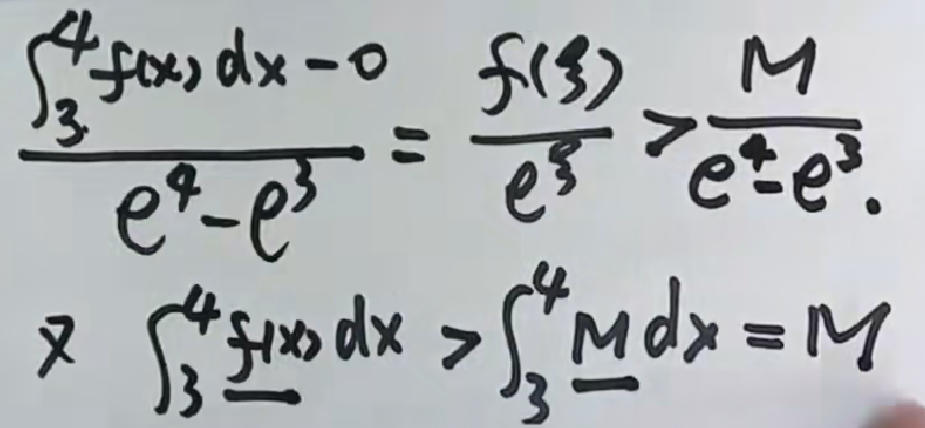 $\frac{\int_3^4 f(x)dx-0}{e^4-e^3} = \frac{f(ξ)}{e^ξ} > \frac{M}{e^4-e^3}.$
又 $\int_3^4 f(x)dx > \int_3^4 Mdx = M$